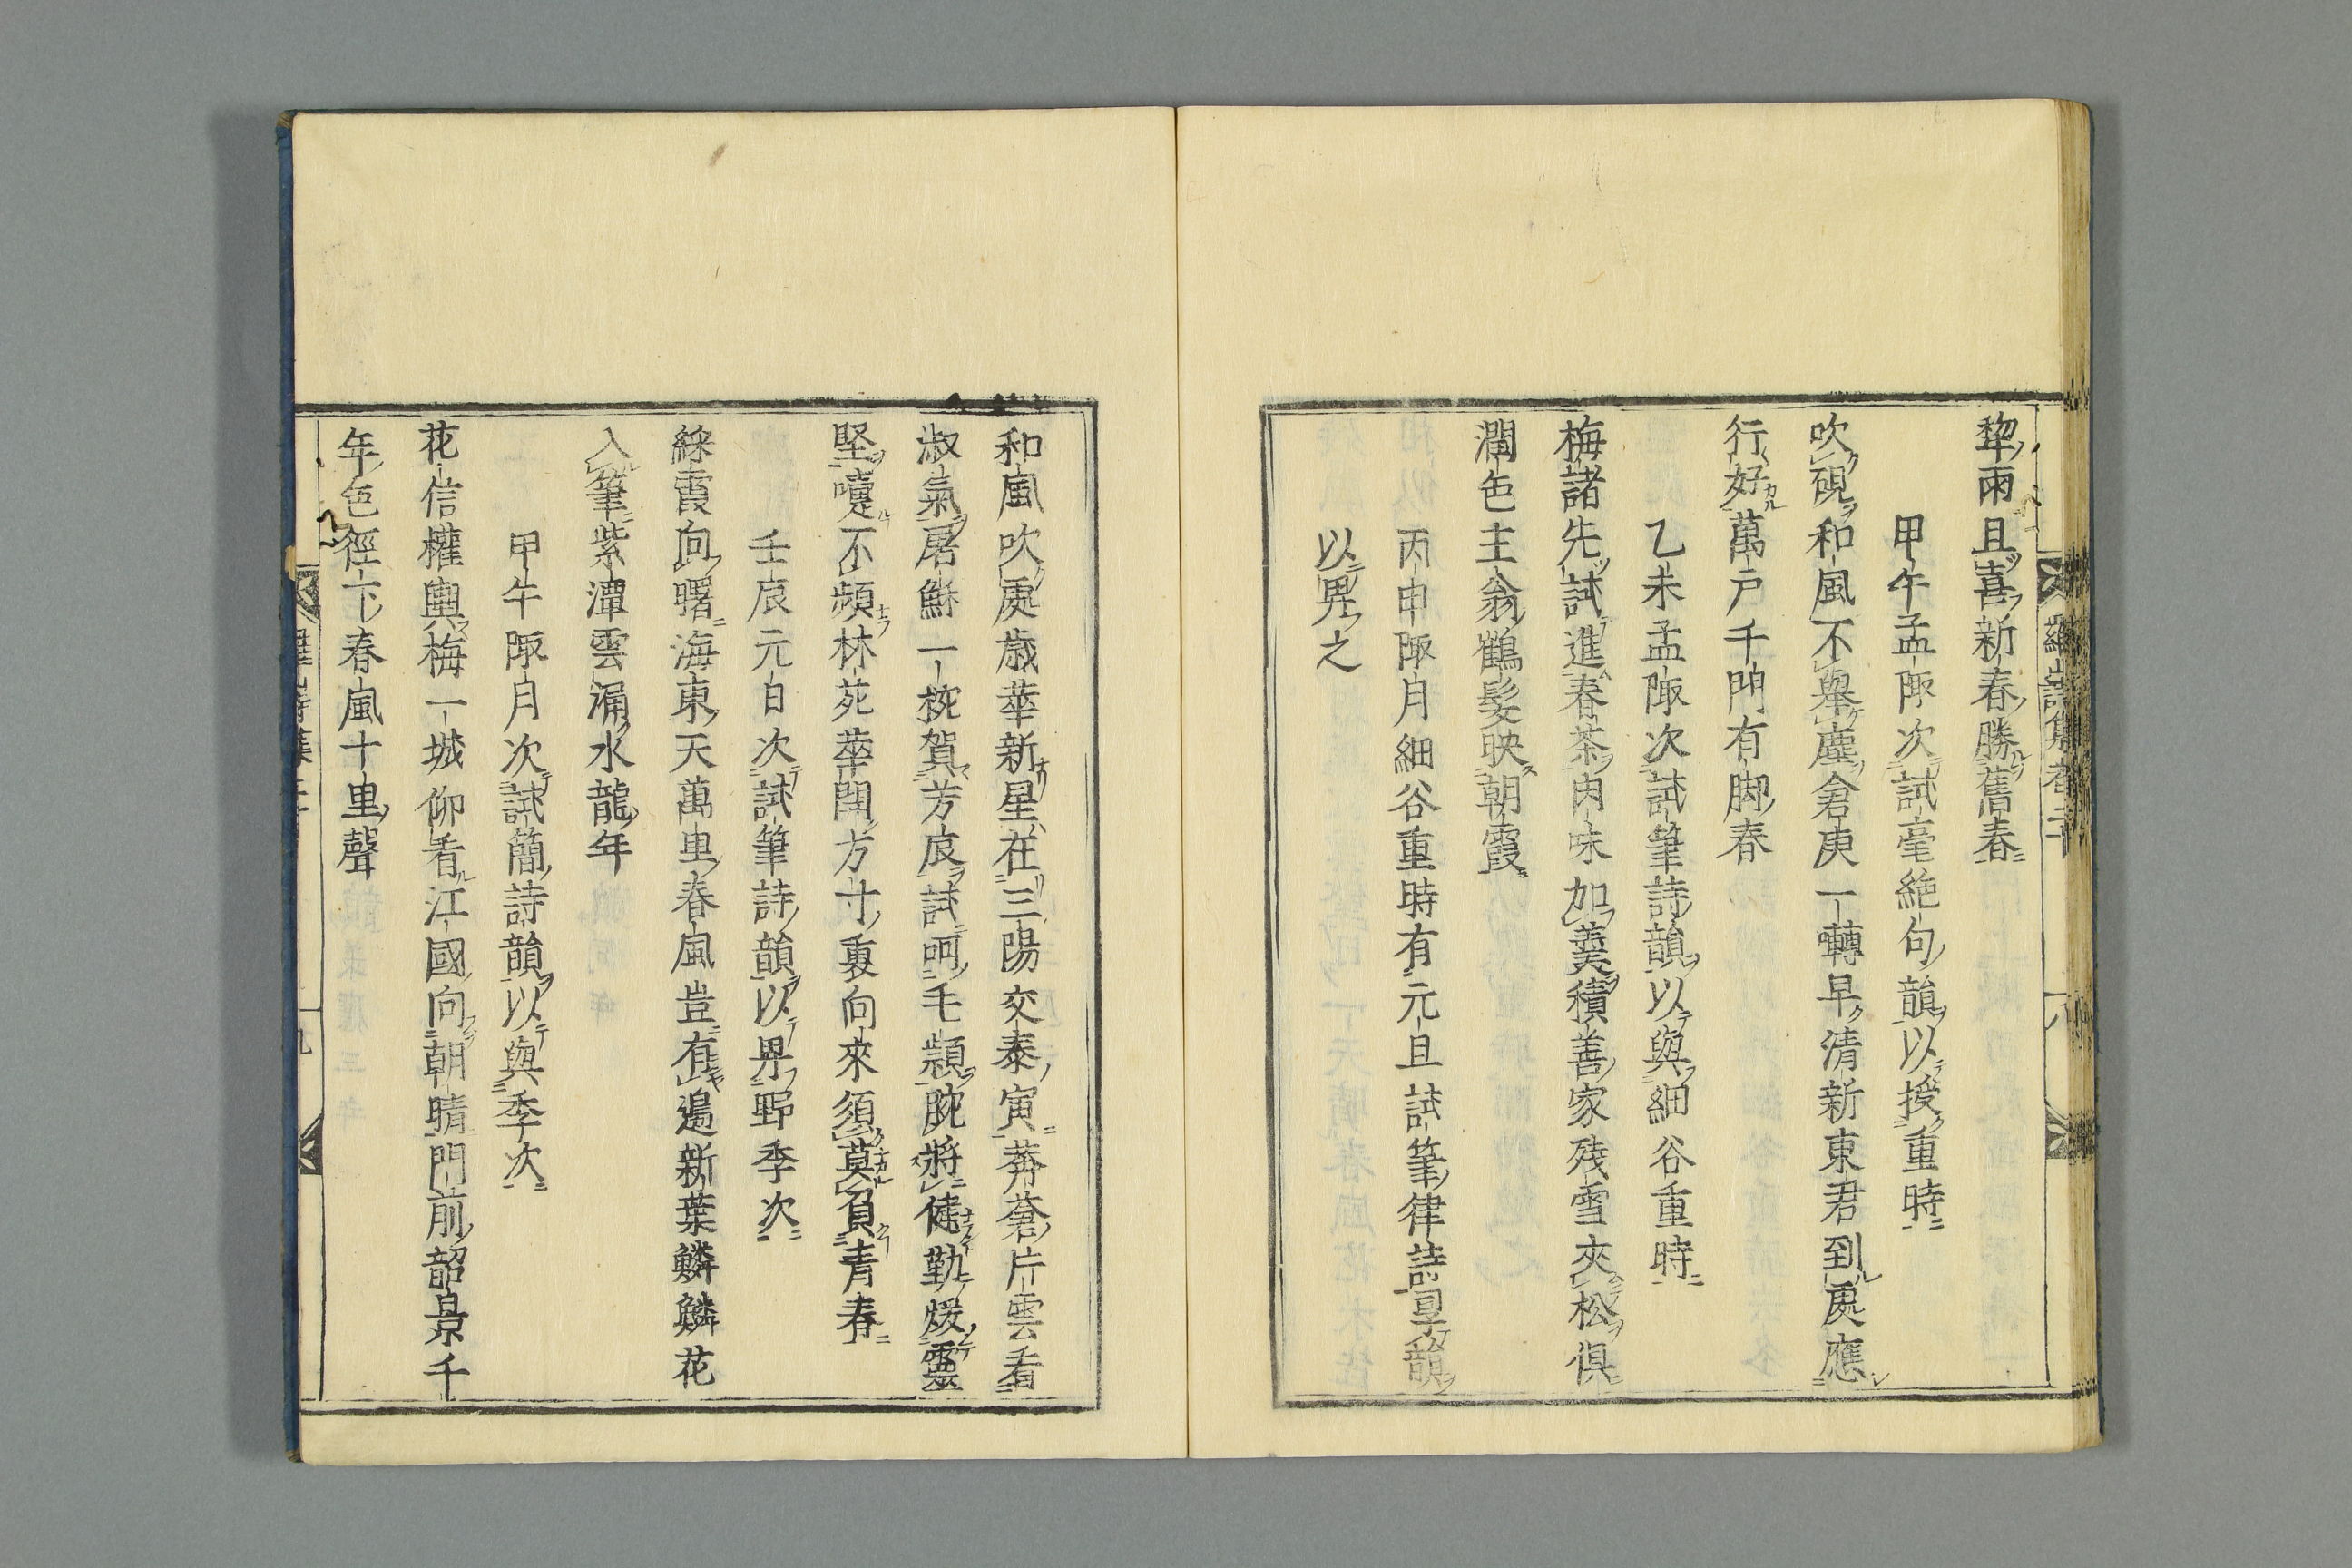 犂雨且喜新春勝舊春
甲午孟陬次試毫絶句韻以授重時
吹硯和風不舉塵倉庚一囀早清新東君到處應
行好萬戸千門有脚春
乙未孟陬次試筆詩韻以與細谷重時
梅諸先試進春茶肉味加羹積善家殘雪夾松俱
潤色主翁鶴髮映朝霞
丙申陬月細谷重時有元旦試筆律詩
以畀之
和風吹處歳華新星在三陽交泰寅莽蒼片雲看
淑氣屠穌一椀賀芳辰試呵毛頴腕將健勒煖靈
堅嚏不頻林苑華開方寸裏向來須莫負青春
壬辰元日次試筆詩韻以畀野季次
綵霞向曙海東天萬里春風豈有邉新葉鱗鱗花
入筆紫潭雲涌水龍年
甲午陬月次試簡詩韻以與季次
花信權輿梅一城仰看江國向朝晴門前韶景千
年色徑下春風十里聲